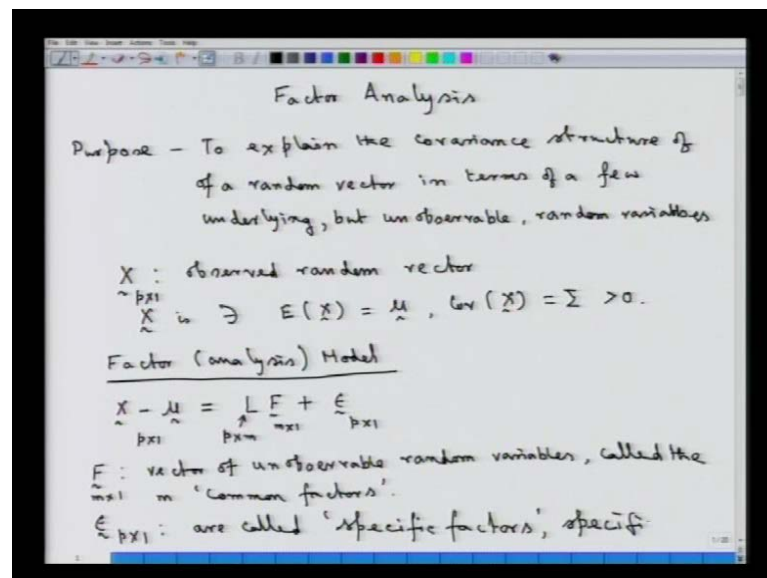 File Edit View Insert Actions Tools Help
Factor Analysis
Purpose – To explain the covariance structure of
of a random vector in terms of a few
underlying, but unobservable, random variables
X : observed random vector
~ p×1
X is ∋ E(X) = μ, Cov(X) = Σ > 0.
Factor (analysis) Model
X – μ = L F + ε
p×1 p×m m×1 p×1
F : vector of unobservable random variables, called the
m×1 m 'common factors'.
ε p×1 : are called 'specific factors', specifi